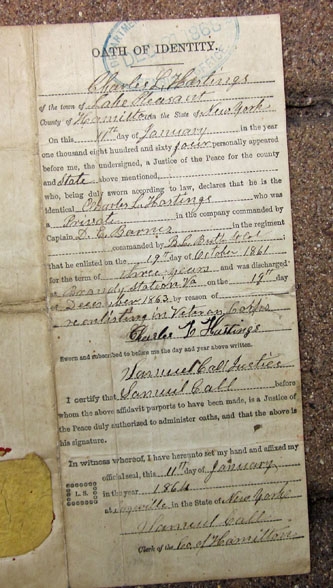 OATH OF IDENTITY.
Charles L. Hastings
of the town of Lake Pleasant
County of Hamilton in the State of New York
On this 11th day of January in the year
one thousand eight hundred and sixty four personally appeared
before me, the undersigned, a Justice of the Peace for the county
and State above mentioned,
who, being duly sworn according to law, declares that he is the
identical Charles L. Hastings who was
a Private in the company commanded by
Captain D. E. Barner in the regiment
commanded by
that he enlisted on the 19th day of October 1861
for the term of three years and was discharged
Brandy Station Va. on the 19th
December 1863 by reason of
reenlisting in Veteran Corps
Charles L Hastings
Sworn and subscribed to before me the day and year above written.
Samuel Call Justice
I certify that Samuel Call before
whom the above affidavit purports to have been made, is a Justice of
the Peace duly authorized to administer oaths, and that the above is
his signature.
In witness whereof, I have hereunto set my hand and affixed my
official seal, this 11th day of January
L. S. in the year 1864
at in the State of New York
Samuel Call
Clerk of the Co. of Hamilton